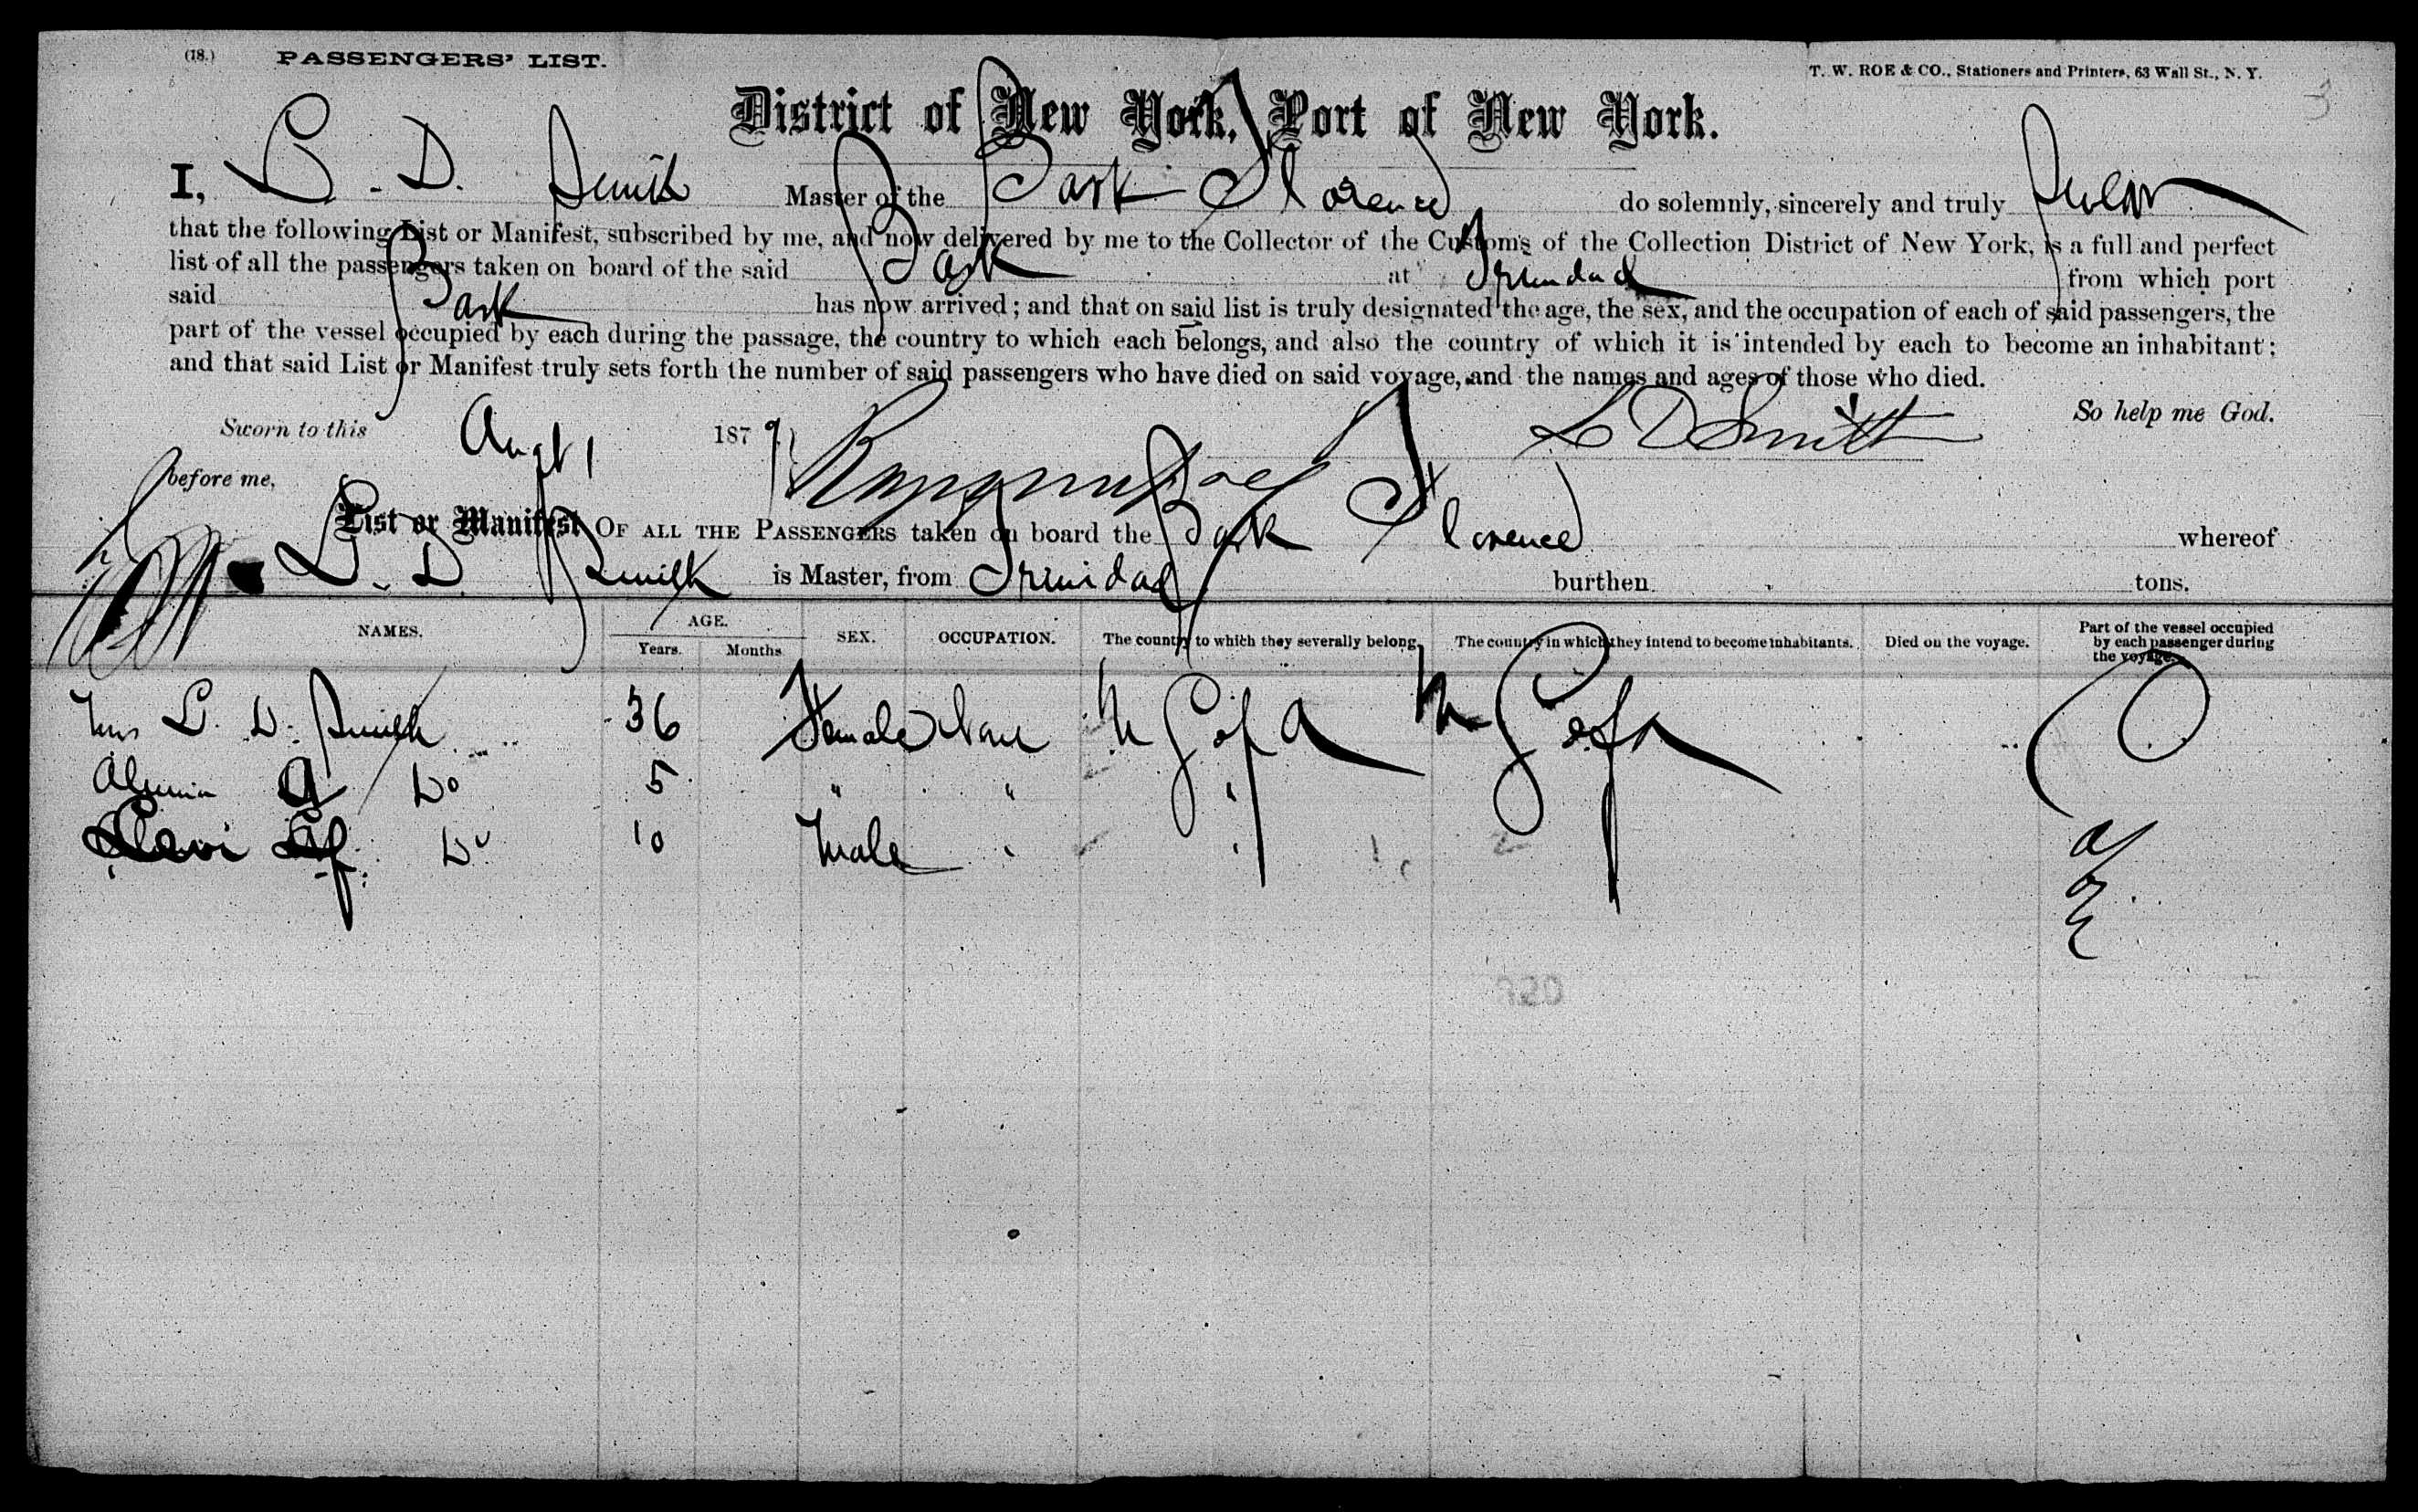 (18.) PASSENGERS' LIST.
T. W. ROE & CO., Stationers and Printers, 63 Wall St., N. Y.
3
District of New York, Port of New York.
I, L. D. Smith Master of the Bark Florence do solemnly, sincerely and truly Swear
that the following List or Manifest, subscribed by me, and now delivered by me to the Collector of the Customs of the Collection District of New York, is a full and perfect
list of all the passengers taken on board of the said Bark at Trinidad from which port
said Bark has now arrived; and that on said list is truly designated the age, the sex, and the occupation of each of said passengers, the
part of the vessel occupied by each during the passage, the country to which each belongs, and also the country of which it is intended by each to become an inhabitant;
and that said List or Manifest truly sets forth the number of said passengers who have died on said voyage, and the names and ages of those who died.
So help me God.
Sworn to this Augt 1 1879 L D Smith
before me,
List or Manifest OF ALL THE PASSENGERS taken on board the Bark Florence whereof
L. D. Smith is Master, from Trinidad burthen tons.
NAMES. AGE. Years. Months SEX. OCCUPATION. The country to which they severally belong. The country in which they intend to become inhabitants. Died on the voyage. Part of the vessel occupied by each passenger during the voyage.
Mrs L. D. Smith 36 Female None U S of A U S of A
A Do 5 " " "
Levi Do 10 Male " "